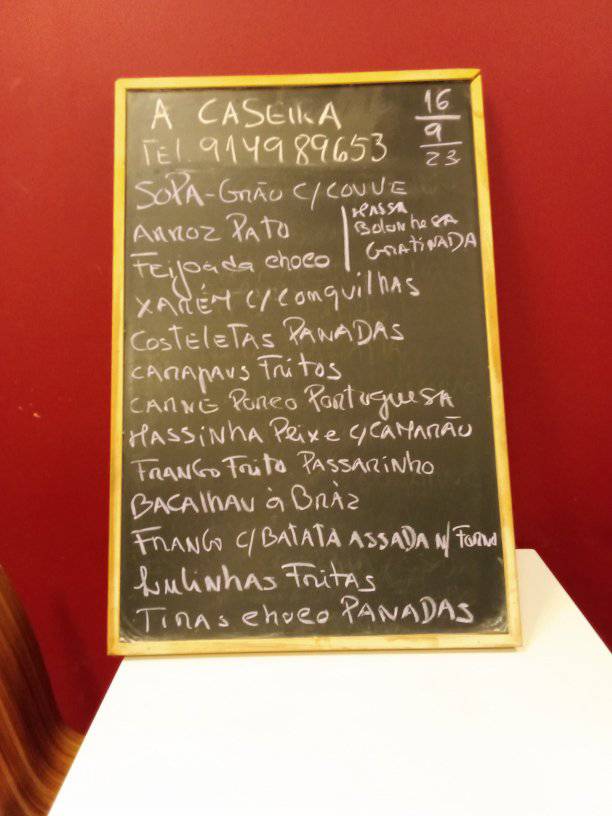 A CASEIRA
TEL. 914989653
16
9
23
SOPA-GRÃO C/COUVE
ARROZ PATO
Feijoada choco
MASSA
Bolonhesa
GRATINADA
XARÉM C/Conquilhas
COSTELETAS PANADAS
CARAPAUS FRITOS
CARNE PORCO PORTUGUESA
MASSINHA PEIXE C/CAMARÃO
FRANGO FRITO PASSARINHO
BACALHAU à BRÁZ
FRANGO C/BATATA ASSADA N/FORNO
LULINHAS FRITAS
TIRAS choco PANADAS